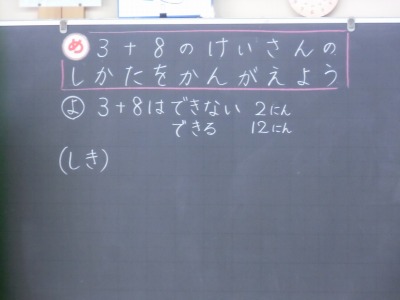 め 3+8のけいさんの
しかたをかんがえよう
よ 3+8はできない 2にん
できる 12にん
(しき)